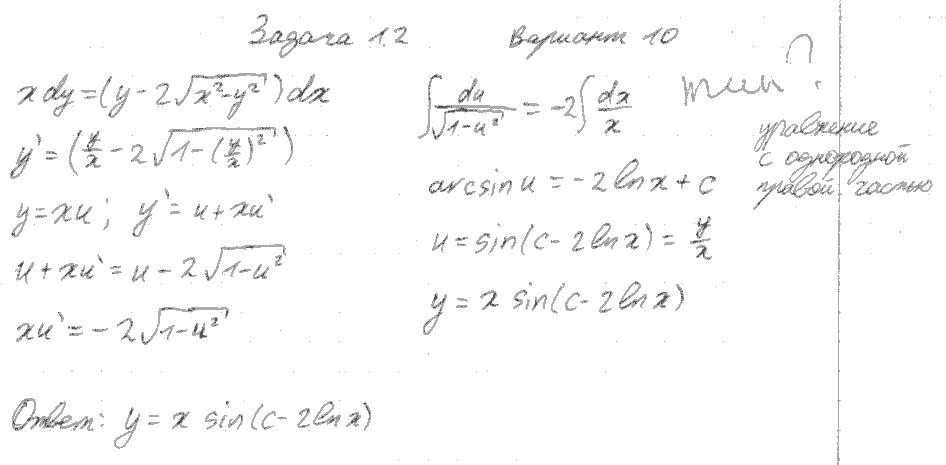 Задача 1.2 Вариант 10
x dy = (y - 2√(x² - y²)) dx
y' = (y/x - 2√(1 - (y/x)²))
y = xu; y' = u + xu'
u + xu' = u - 2√(1 - u²)
xu' = -2√(1 - u²)
∫ du/√(1 - u²) = -2∫ dx/x
arcsin u = -2 ln x + c
u = sin(c - 2 ln x) = y/x
y = x sin(c - 2 ln x)
тип?
уравнение
с однородной
правой частью
Ответ: y = x sin(c - 2 ln x)